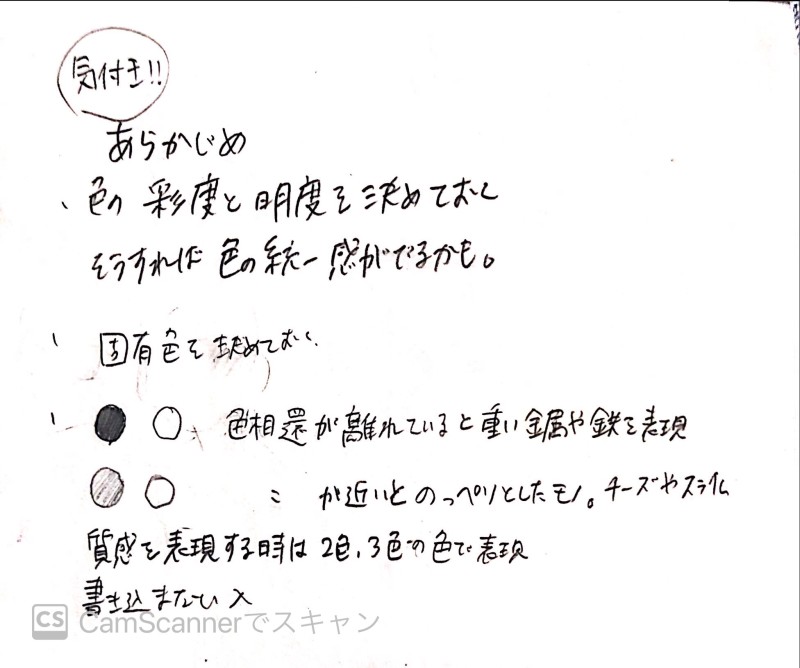 気付き!!
あらかじめ
、色の 彩度と 明度を決めておく
そうすれば 色の統一感がでるかも。
、固有色を 決めておく.
、色相還が離れていると重い金属や鉄を表現
〃 が近いとのっぺりとしたモノ。チーズやスライム
質感を表現する時は 2色、3色の色で表現
書き込まない ×
CS CamScannerでスキャン